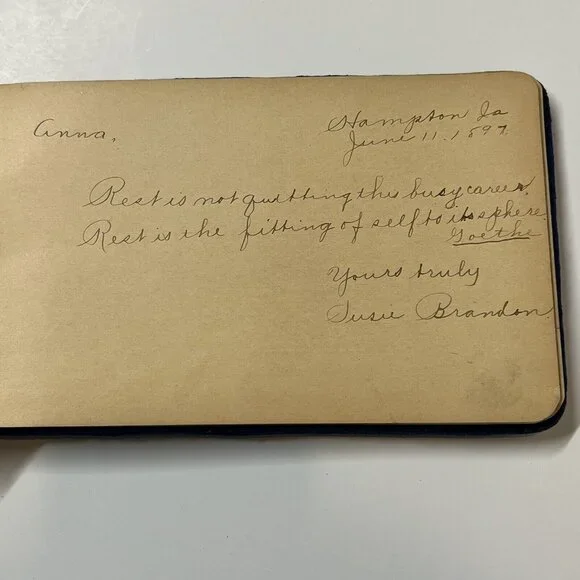 Hampton Ia
Anna,
June 11. 1897.
Rest is not quitting this busy career.
Rest is the fitting of self to its sphere.
Goethe
Yours truly
Susie Brandon.